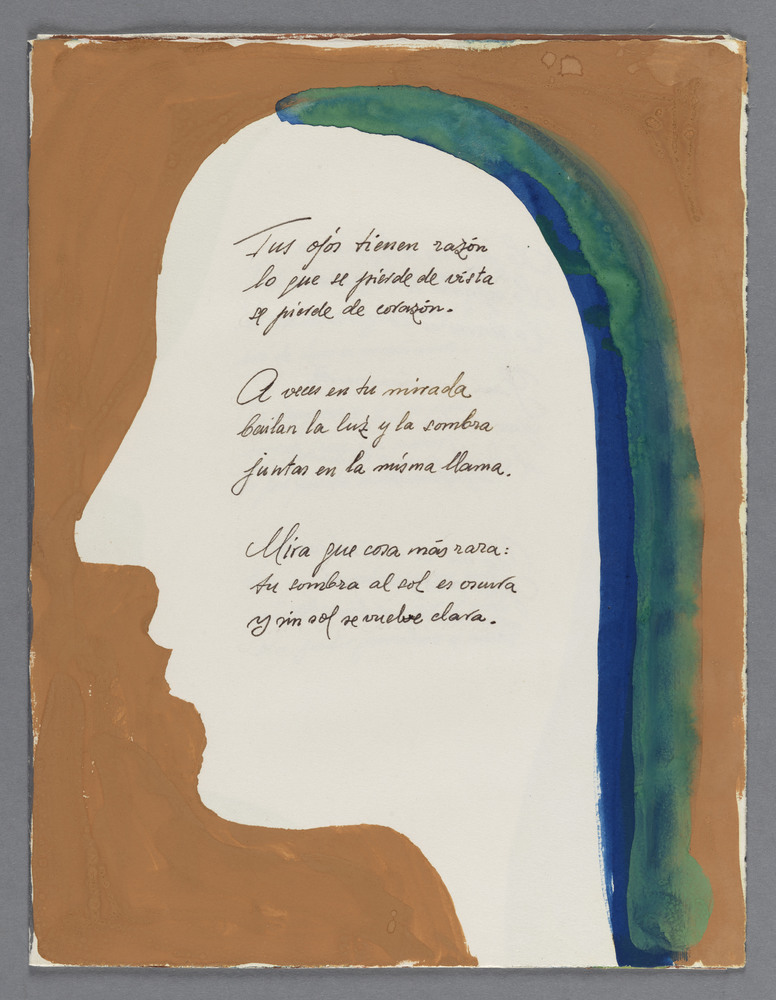 Tus ojos tienen razón
lo que se pierde de vista
se pierde de corazón.
A veces en tu mirada
bailan la luz y la sombra
juntas en la misma llama.
Mira que cosa más rara:
tu sombra al sol es oscura
y sin sol se vuelve clara.